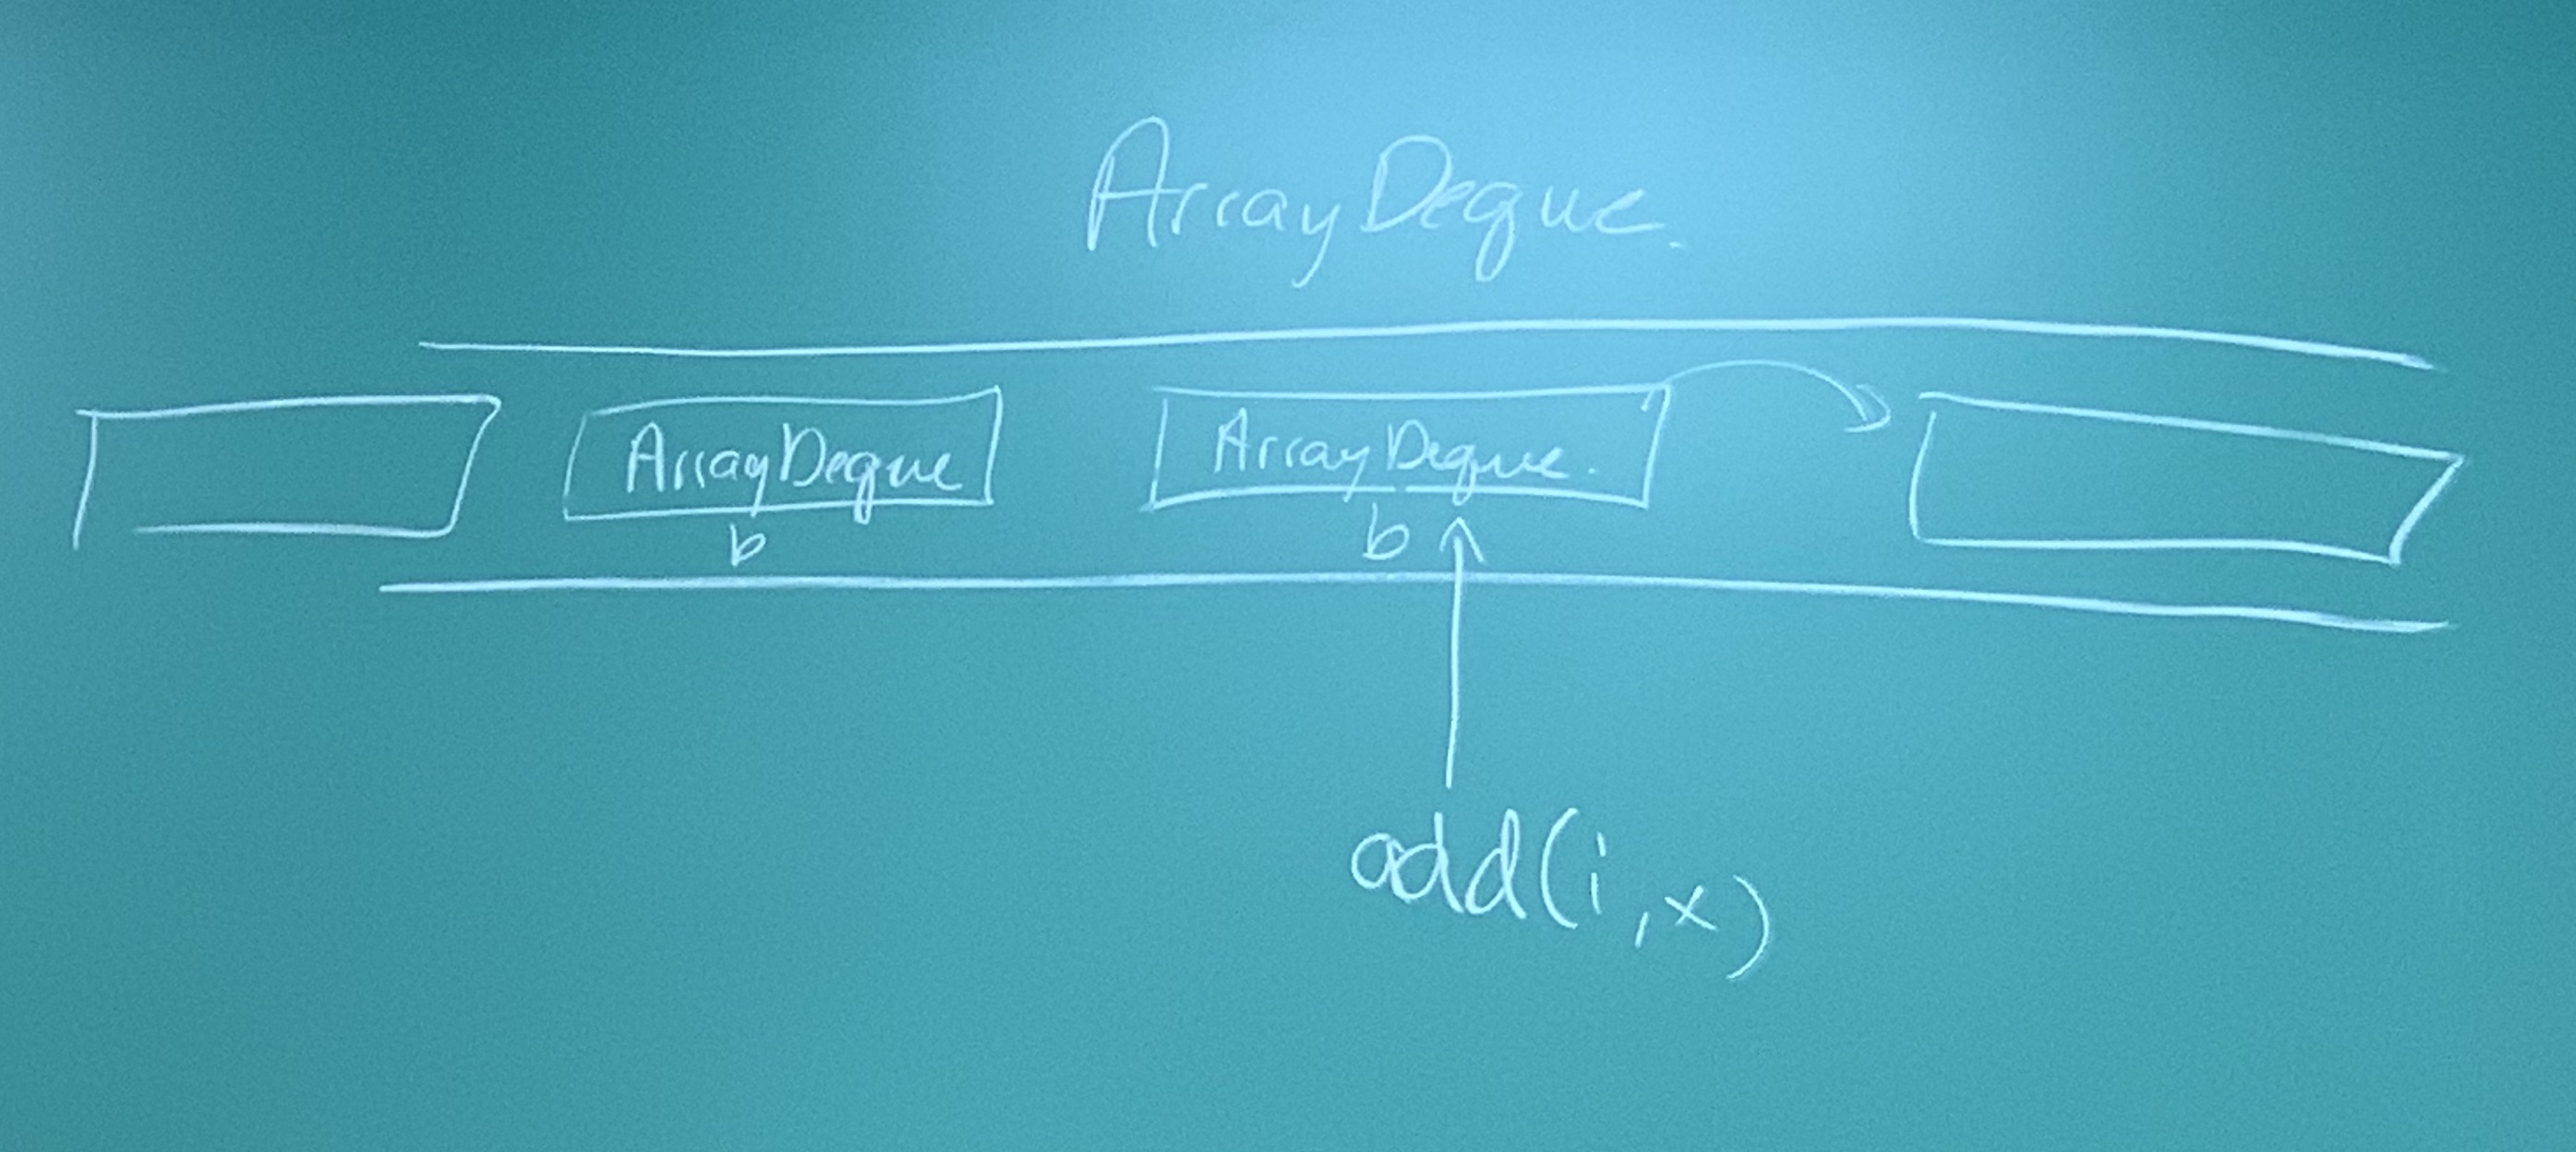 ArrayDeque.
ArrayDeque ArrayDeque.
b b
add(i,x)